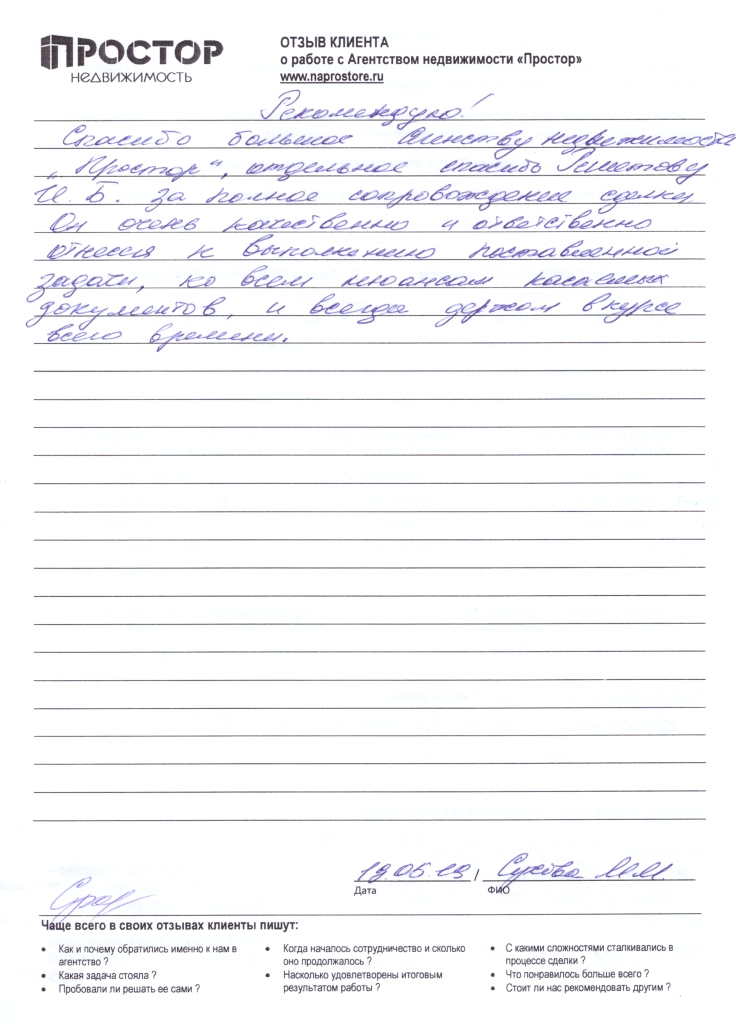 ПРОСТОР
НЕДВИЖИМОСТЬ
ОТЗЫВ КЛИЕНТА
о работе с Агентством недвижимости «Простор»
www.naprostore.ru
Рекомендую!
Спасибо большое Агенству недвижимости
„Простор“, отдельное спасибо
И. Б. за полное сопровождение сделки
Он очень качественно и ответственно
отнесся к выполнению поставленной
задачи, ко всем нюансам касаемых
документов, и всегда держал в курсе
всего времени.
/
Дата
ФИО
Чаще всего в своих отзывах клиенты пишут:
• Как и почему обратились именно к нам в
агентство ?
• Какая задача стояла ?
• Пробовали ли решать ее сами ?
• Когда началось сотрудничество и сколько
оно продолжалось ?
• Насколько удовлетворены итоговым
результатом работы ?
• С какими сложностями сталкивались в
процессе сделки ?
• Что понравилось больше всего ?
• Стоит ли нас рекомендовать другим ?